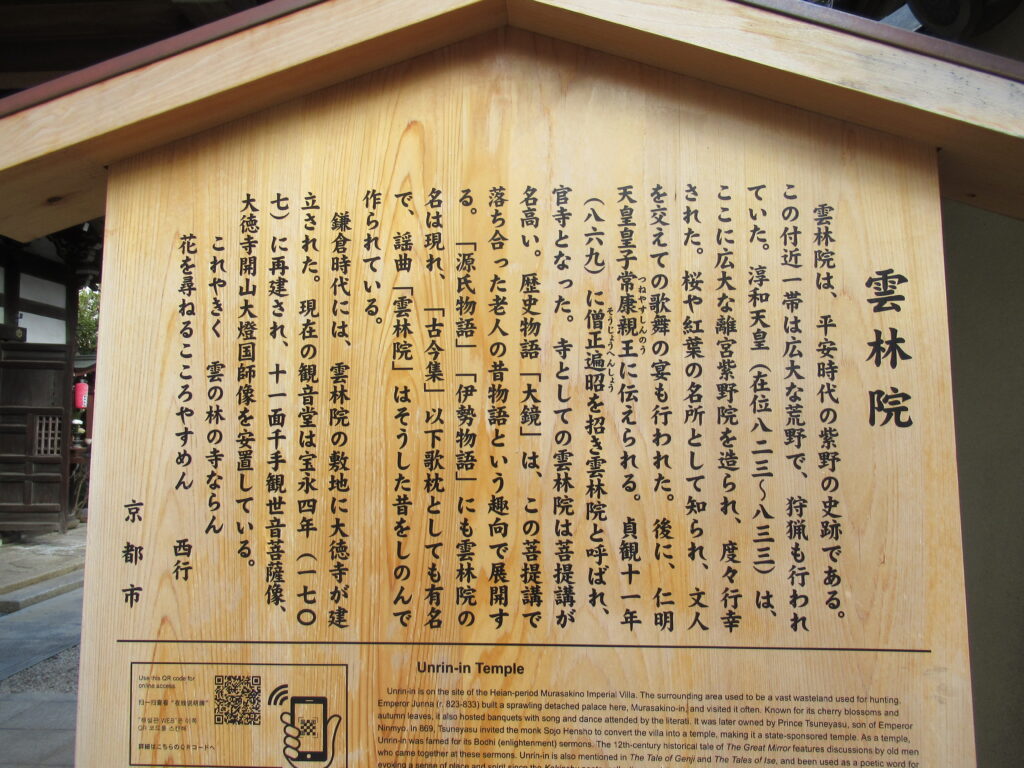 雲林院
雲林院は、平安時代の紫野の史跡である。
この付近一帯は広大な荒野で、狩猟も行われ
ていた。淳和天皇(在位八二三〜八三三)は、
ここに広大な離宮紫野院を造られ、度々行幸
された。桜や紅葉の名所として知られ、文人
を交えての歌舞の宴も行われた。後に、仁明
天皇皇子常康親王に伝えられる。貞観十一年
つねやすしんのう
(八六九)に僧正遍昭を招き雲林院と呼ばれ、
そうじょうへんしょう
官寺となった。寺としての雲林院は菩提講が
名高い。歴史物語「大鏡」は、この菩提講で
落ち合った老人の昔物語という趣向で展開す
る。「源氏物語」「伊勢物語」にも雲林院の
名は現れ、「古今集」以下歌枕としても有名
で、謡曲「雲林院」はそうした昔をしのんで
作られている。
鎌倉時代には、雲林院の敷地に大徳寺が建
立された。現在の観音堂は宝永四年(一七〇
七)に再建され、十一面千手観世音菩薩像、
大徳寺開山大燈国師像を安置している。
これやきく 雲の林の寺ならん
花を尋ねるこころやすめん 西行
京都市
Use this QR code for
online access.
扫一扫查看"在线说明牌"
"해설판 WEB"은 이쪽
QR 코드를 스캔해
詳細はこちらのQRコードへ
Unrin-in Temple
Unrin-in is on the site of the Heian-period Murasakino Imperial Villa. The surrounding area used to be a vast wasteland used for hunting.
Emperor Junna (r. 823-833) built a sprawling detached palace here, Murasakino-in, and visited it often. Known for its cherry blossoms and
autumn leaves, it also hosted banquets with song and dance attended by the literati. It was later owned by Prince Tsuneyasu, son of Emperor
Ninmyo. In 869, Tsuneyasu invited the monk Sojo Hensho to convert the villa into a temple, making it a state-sponsored temple. As a temple,
Unrin-in was famed for its Bochi (enlightenment) sermons. The 12th-century historical tale of The Great Mirror features discussions by old men
who came together at these sermons. Unrin-in is also mentioned in The Tale of Genji and The Tales of Ise, and been used as a poetic word for
evoking a sense of place and spirit since the